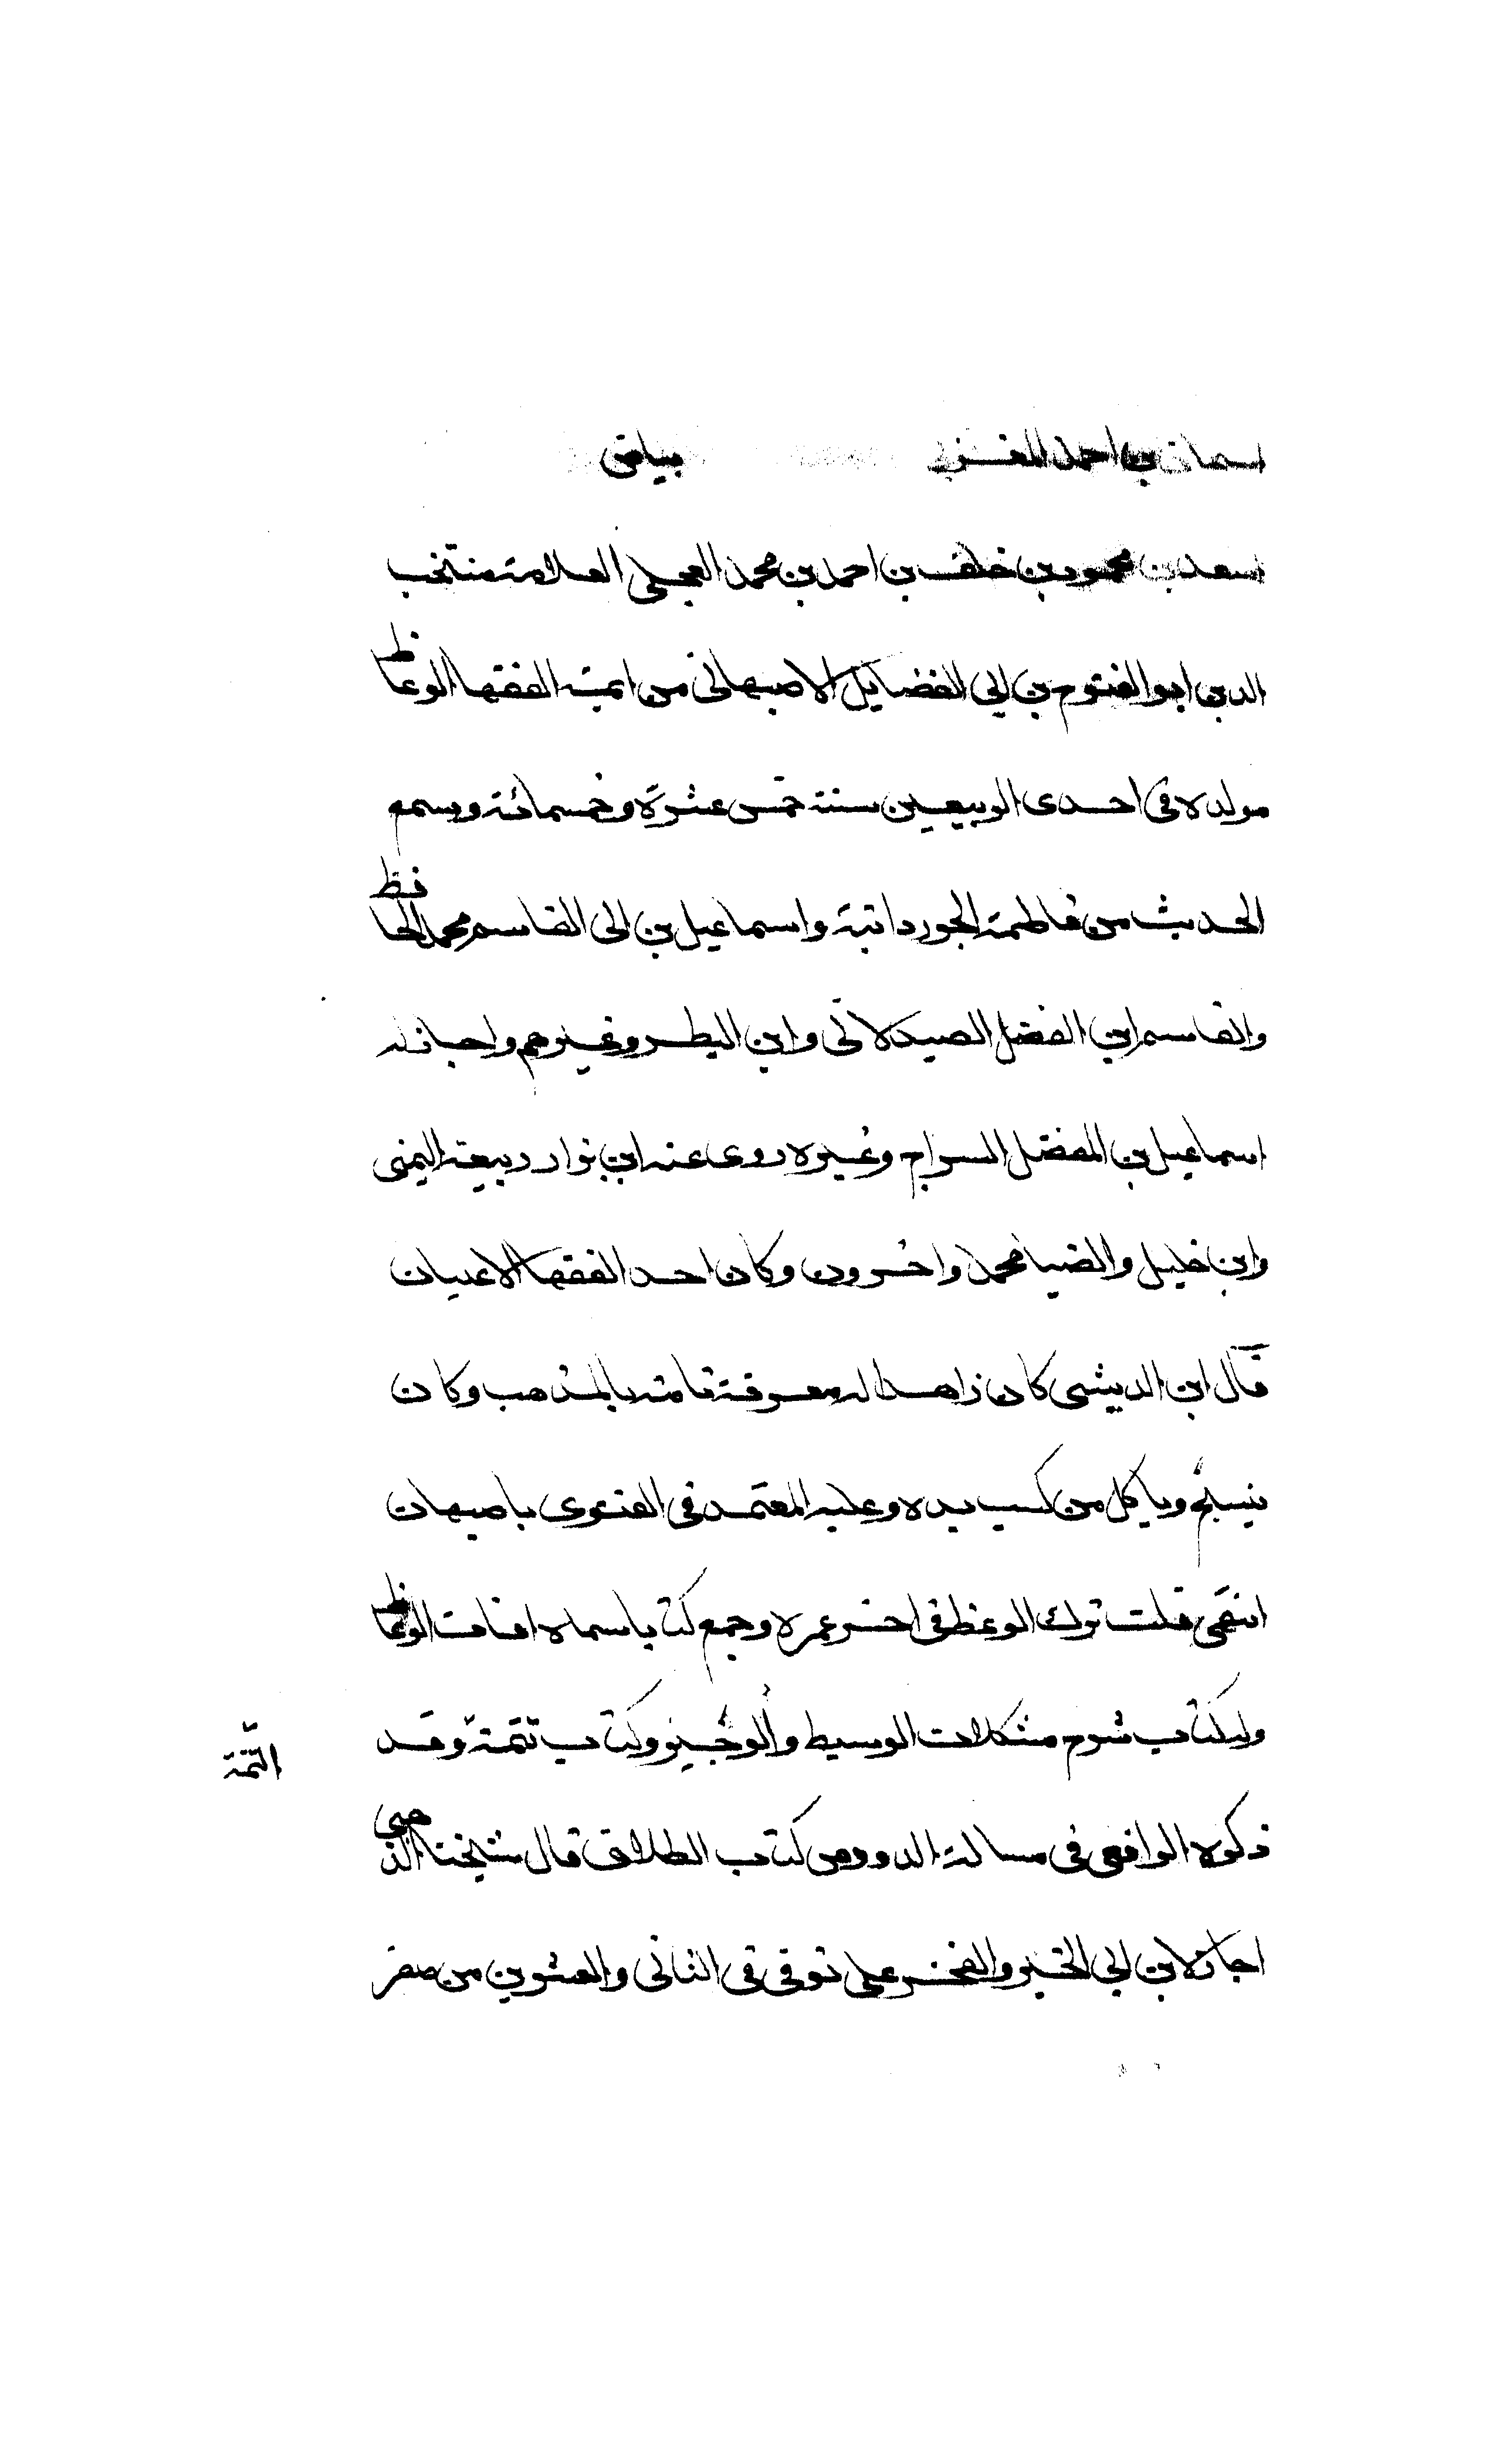 اسحاق بن احمد المغربي بياض
اسعد بن محمود بن خلف بن احمد بن محمد العجلي العلامة منتخب
الدين ابو الفتوح بن ابي الفضايل الاصبهاني من ايمة الفقها الوعاظ
مولده في احدى الربيعين سنة خمس عشرة وخمسمائة وسمع
الحديث من فاطمة الجوردانية واسماعيل بن ابى القاسم محمد الحافظ
والقاسم ابن الفضل الصيدلانى وابن البطر وغيرهم واجاز له
اسماعيل بن الفضل السراج وغيره روى عنه ابن نزار ربيعة اليمنى
وابن خليل والضيا محمد واخرون وكان احد الفقها الاعيان
قال ابن الدبيثى كان زاهدا له معرفة تامة بالمذهب وكان
ينسخ وياكل من كسب يده وعليه المعتمد فى الفتوى باصبهان
انتهى قلت ترك الوعظ فى اخر عمره وجمع كتابا سماه افات الوعاظ
وله كتاب شرح مشكلات الوسيط والوجيز وكتاب تتمة وقد
التتمة
ذكره الرافعى فى مسالة الدور من كتاب الطلاق قال شيخنا الذهبى
اجاز لابن ابي الخير والفخر على توفى فى الثانى والعشرين من صفر